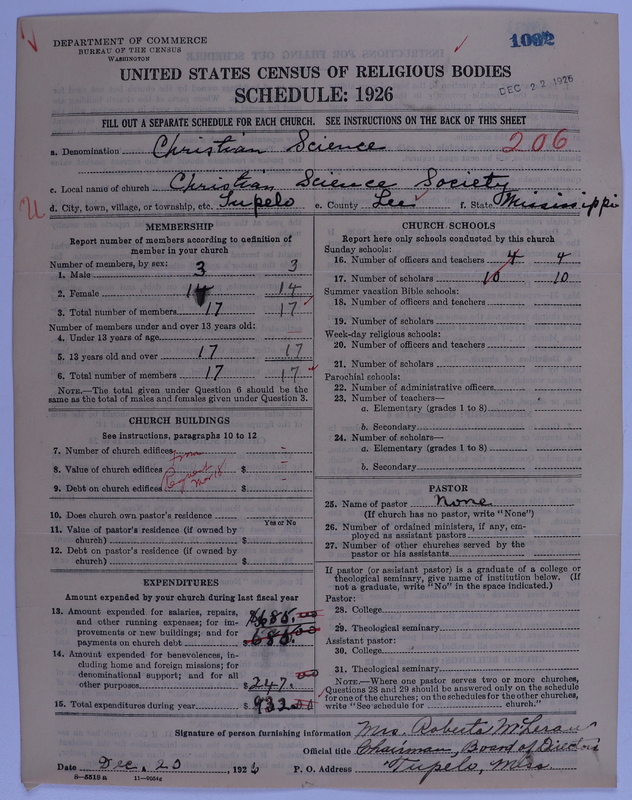 DEPARTMENT OF COMMERCE
BUREAU OF THE CENSUS
WASHINGTON
1092
DEC 22 1926
UNITED STATES CENSUS OF RELIGIOUS BODIES
SCHEDULE: 1926
FILL OUT A SEPARATE SCHEDULE FOR EACH CHURCH. SEE INSTRUCTIONS ON THE BACK OF THIS SHEET
a. Denomination Christian Science 206
c. Local name of church Christian Science Society
U d. City, town, village, or township, etc. Tupelo e. County Lee f. State Mississippi
MEMBERSHIP
Report number of members according to definition of
member in your church
Number of members, by sex:
1. Male 3 3
2. Female 14 14
3. Total number of members 17 17
Number of members under and over 13 years old:
4. Under 13 years of age
5. 13 years old and over 17 17
6. Total number of members 17 17
NOTE.—The total given under Question 6 should be the
same as the total of males and females given under Question 3.
CHURCH BUILDINGS
See instructions, paragraphs 10 to 12
7. Number of church edifices –
8. Value of church edifices $ –
9. Debt on church edifices $ –
10. Does church own pastor's residence
Yes or No
11. Value of pastor's residence (if owned by
church) $
12. Debt on pastor's residence (if owned by
church) $
EXPENDITURES
Amount expended by your church during last fiscal year
13. Amount expended for salaries, repairs,
and other running expenses; for im-
provements or new buildings; and for
payments on church debt $685.00
14. Amount expended for benevolences, in-
cluding home and foreign missions; for
denominational support; and for all
other purposes $247.00
15. Total expenditures during year $932.00
CHURCH SCHOOLS
Report here only schools conducted by this church
Sunday schools:
16. Number of officers and teachers 4 4
17. Number of scholars 10 10
Summer vacation Bible schools:
18. Number of officers and teachers
19. Number of scholars
Week-day religious schools:
20. Number of officers and teachers
21. Number of scholars
Parochial schools:
22. Number of administrative officers
23. Number of teachers—
a. Elementary (grades 1 to 8)
b. Secondary
24. Number of scholars—
a. Elementary (grades 1 to 8)
b. Secondary
PASTOR
25. Name of pastor None
(If church has no pastor, write "None")
26. Number of ordained ministers, if any, em-
ployed as assistant pastors
27. Number of other churches served by the
pastor or his assistants
If pastor (or assistant pastor) is a graduate of a college or
theological seminary, give name of institution below. (If
not a graduate, write "No" in the space indicated.)
Pastor:
28. College
29. Theological seminary
Assistant pastor:
30. College
31. Theological seminary
NOTE.—Where one pastor serves two or more churches,
Questions 28 and 29 should be answered only on the schedule
for one of the churches; on the schedules for the other churches,
write "See schedule for church."
Signature of person furnishing information Mrs. Roberta
Official title Chairman, Board of Directors
Date Dec. 20, 1926 P. O. Address Tupelo, Miss.
8—5518 a